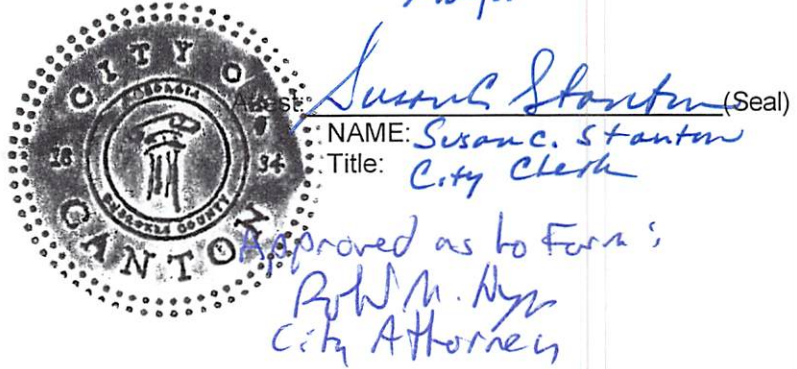 CITY OF
GEORGIA
1834
CHEROKEE COUNTY
CANTON
Attest: Susan C. Stanton (Seal)
NAME: Susan C. Stanton
Title: City Clerk
Approved as to Form:
City Attorney